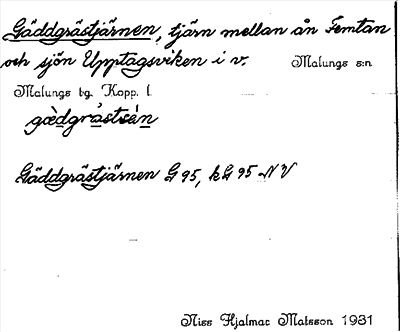 Gäddgråstjärnen, tjärn mellan ån Femtan
och sjön Upptagsviken i v. Malungs s:n
Malungs tg. Kopp. l.
gæ̀dgrå̀stsèn
Gäddgråstjärnen G 95, kG 95 NV
Niss Hjalmar Matsson 1931